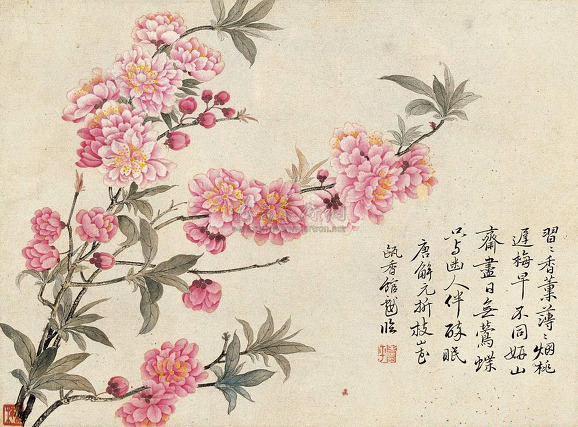 習〻香薰薄〻烟桃
遲梅早不同妍山
齋盡日無鶯蝶
只与幽人伴醉眠
唐解元折枝山花
甌香館摹臨